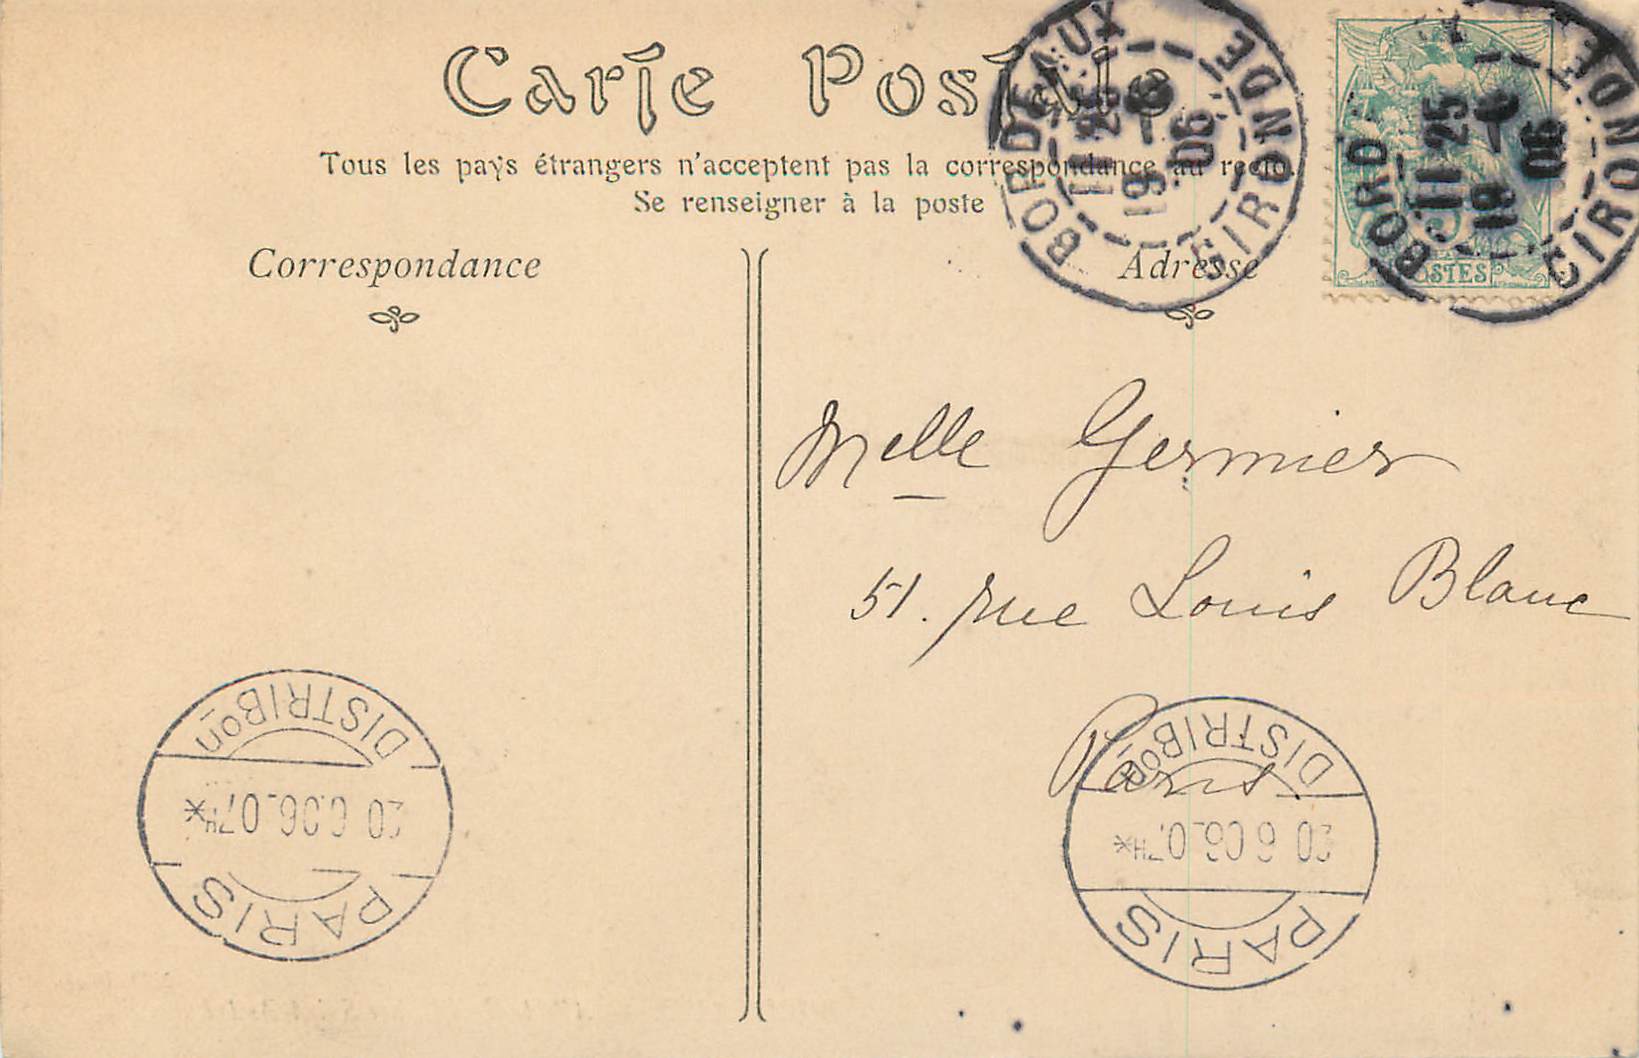 Carte Postale
Tous les pays étrangers n'acceptent pas la correspondance au recto.
Se renseigner à la poste
Correspondance
Adresse
BORDEAUX
11 25
19 -6
06
GIRONDE
BORDE
11 25
19 -6
06
GIRONDE
POSTES
Melle Germier
51. rue Louis Blanc
Paris
PARIS
20 6 06 07H*
DISTRIBon
PARIS
20 6 06 07H*
DISTRIBon